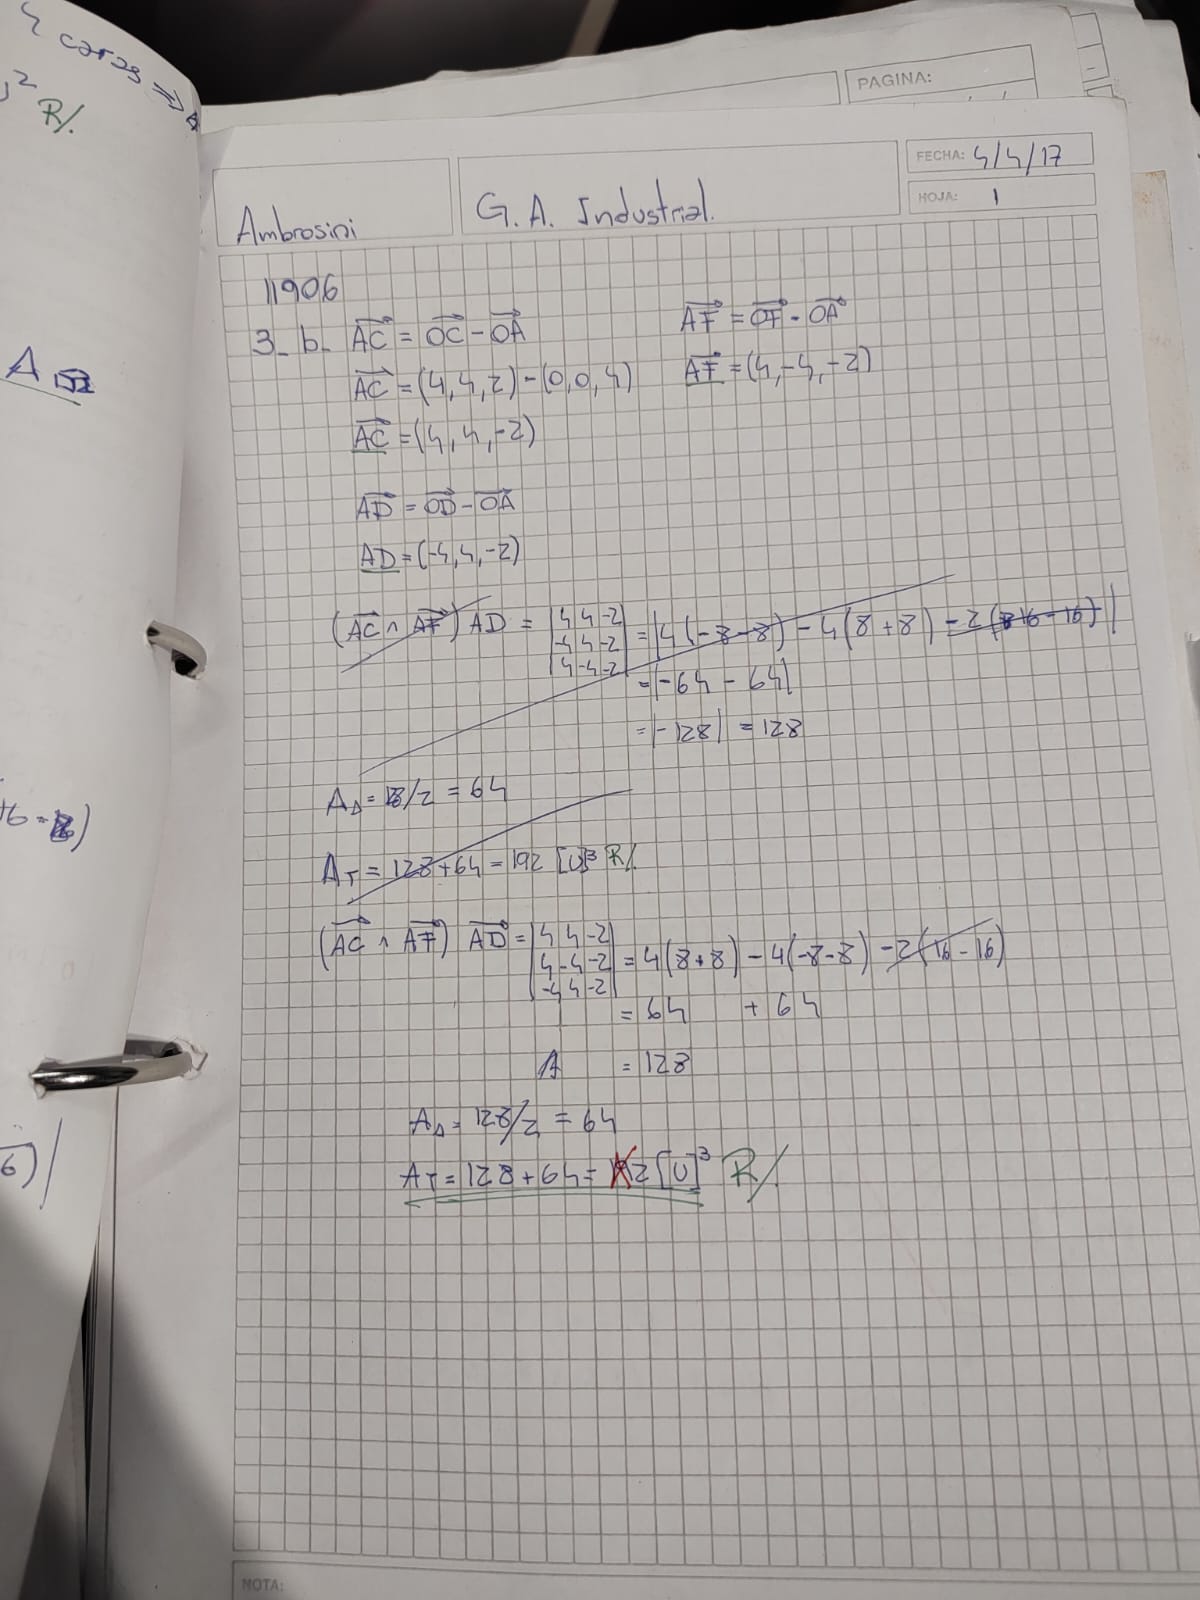 4 caras ⇒
² R/.
A
+6 =
6)/
PAGINA:
FECHA: 4/4/17
HOJA: 1
Ambrosini
G. A. Industrial.
11906
3_ b_ AC = OC - OA
AF = OF - OA
AC = (4, 4, 2) - (0, 0, 4)
AF = (4, -4, -2)
AC = (4, 4, -2)
AD = OD - OA
AD = (-4, 4, -2)
(AC ∧ AF) AD = |4 4 -2| = |4(-8-8) - 4(8+8) - 2(16-16)|
|-4 4 -2|
|4 -4 -2|
= |-64 - 64|
= |-128| = 128
A△ = 128/2 = 64
AT = 128 + 64 = 192 [U]³ R/.
(AC ∧ AF) AD = |4 4 -2| = 4(8+8) - 4(-8-8) - 2(16-16)
|4 -4 -2|
|-4 4 -2|
= 64 + 64
A = 128
A△ = 128/2 = 64
AT = 128 + 64 = 192 [U]³ R/.
NOTA: